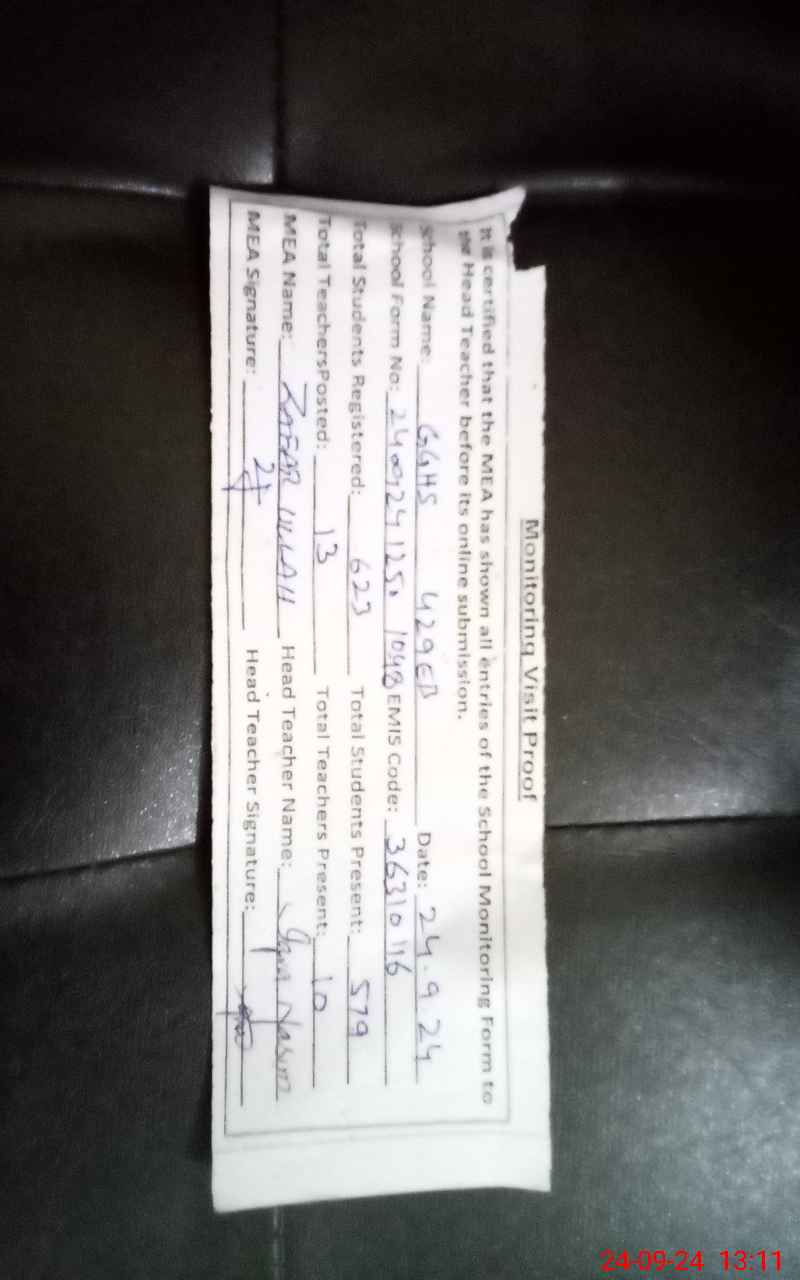 Monitoring Visit Proof
It is certified that the MEA has shown all entries of the School Monitoring Form to
the Head Teacher before its online submission.
School Name: GGHS 429EB Date: 24.9.24
School Form No: EMIS Code: 36310116
Total Students Registered: 623 Total Students Present: 579
Total TeachersPosted: 13 Total Teachers Present: 10
MEA Name: ZAFAR ULLAH Head Teacher Name:
MEA Signature: Head Teacher Signature:
24-09-24 13:11